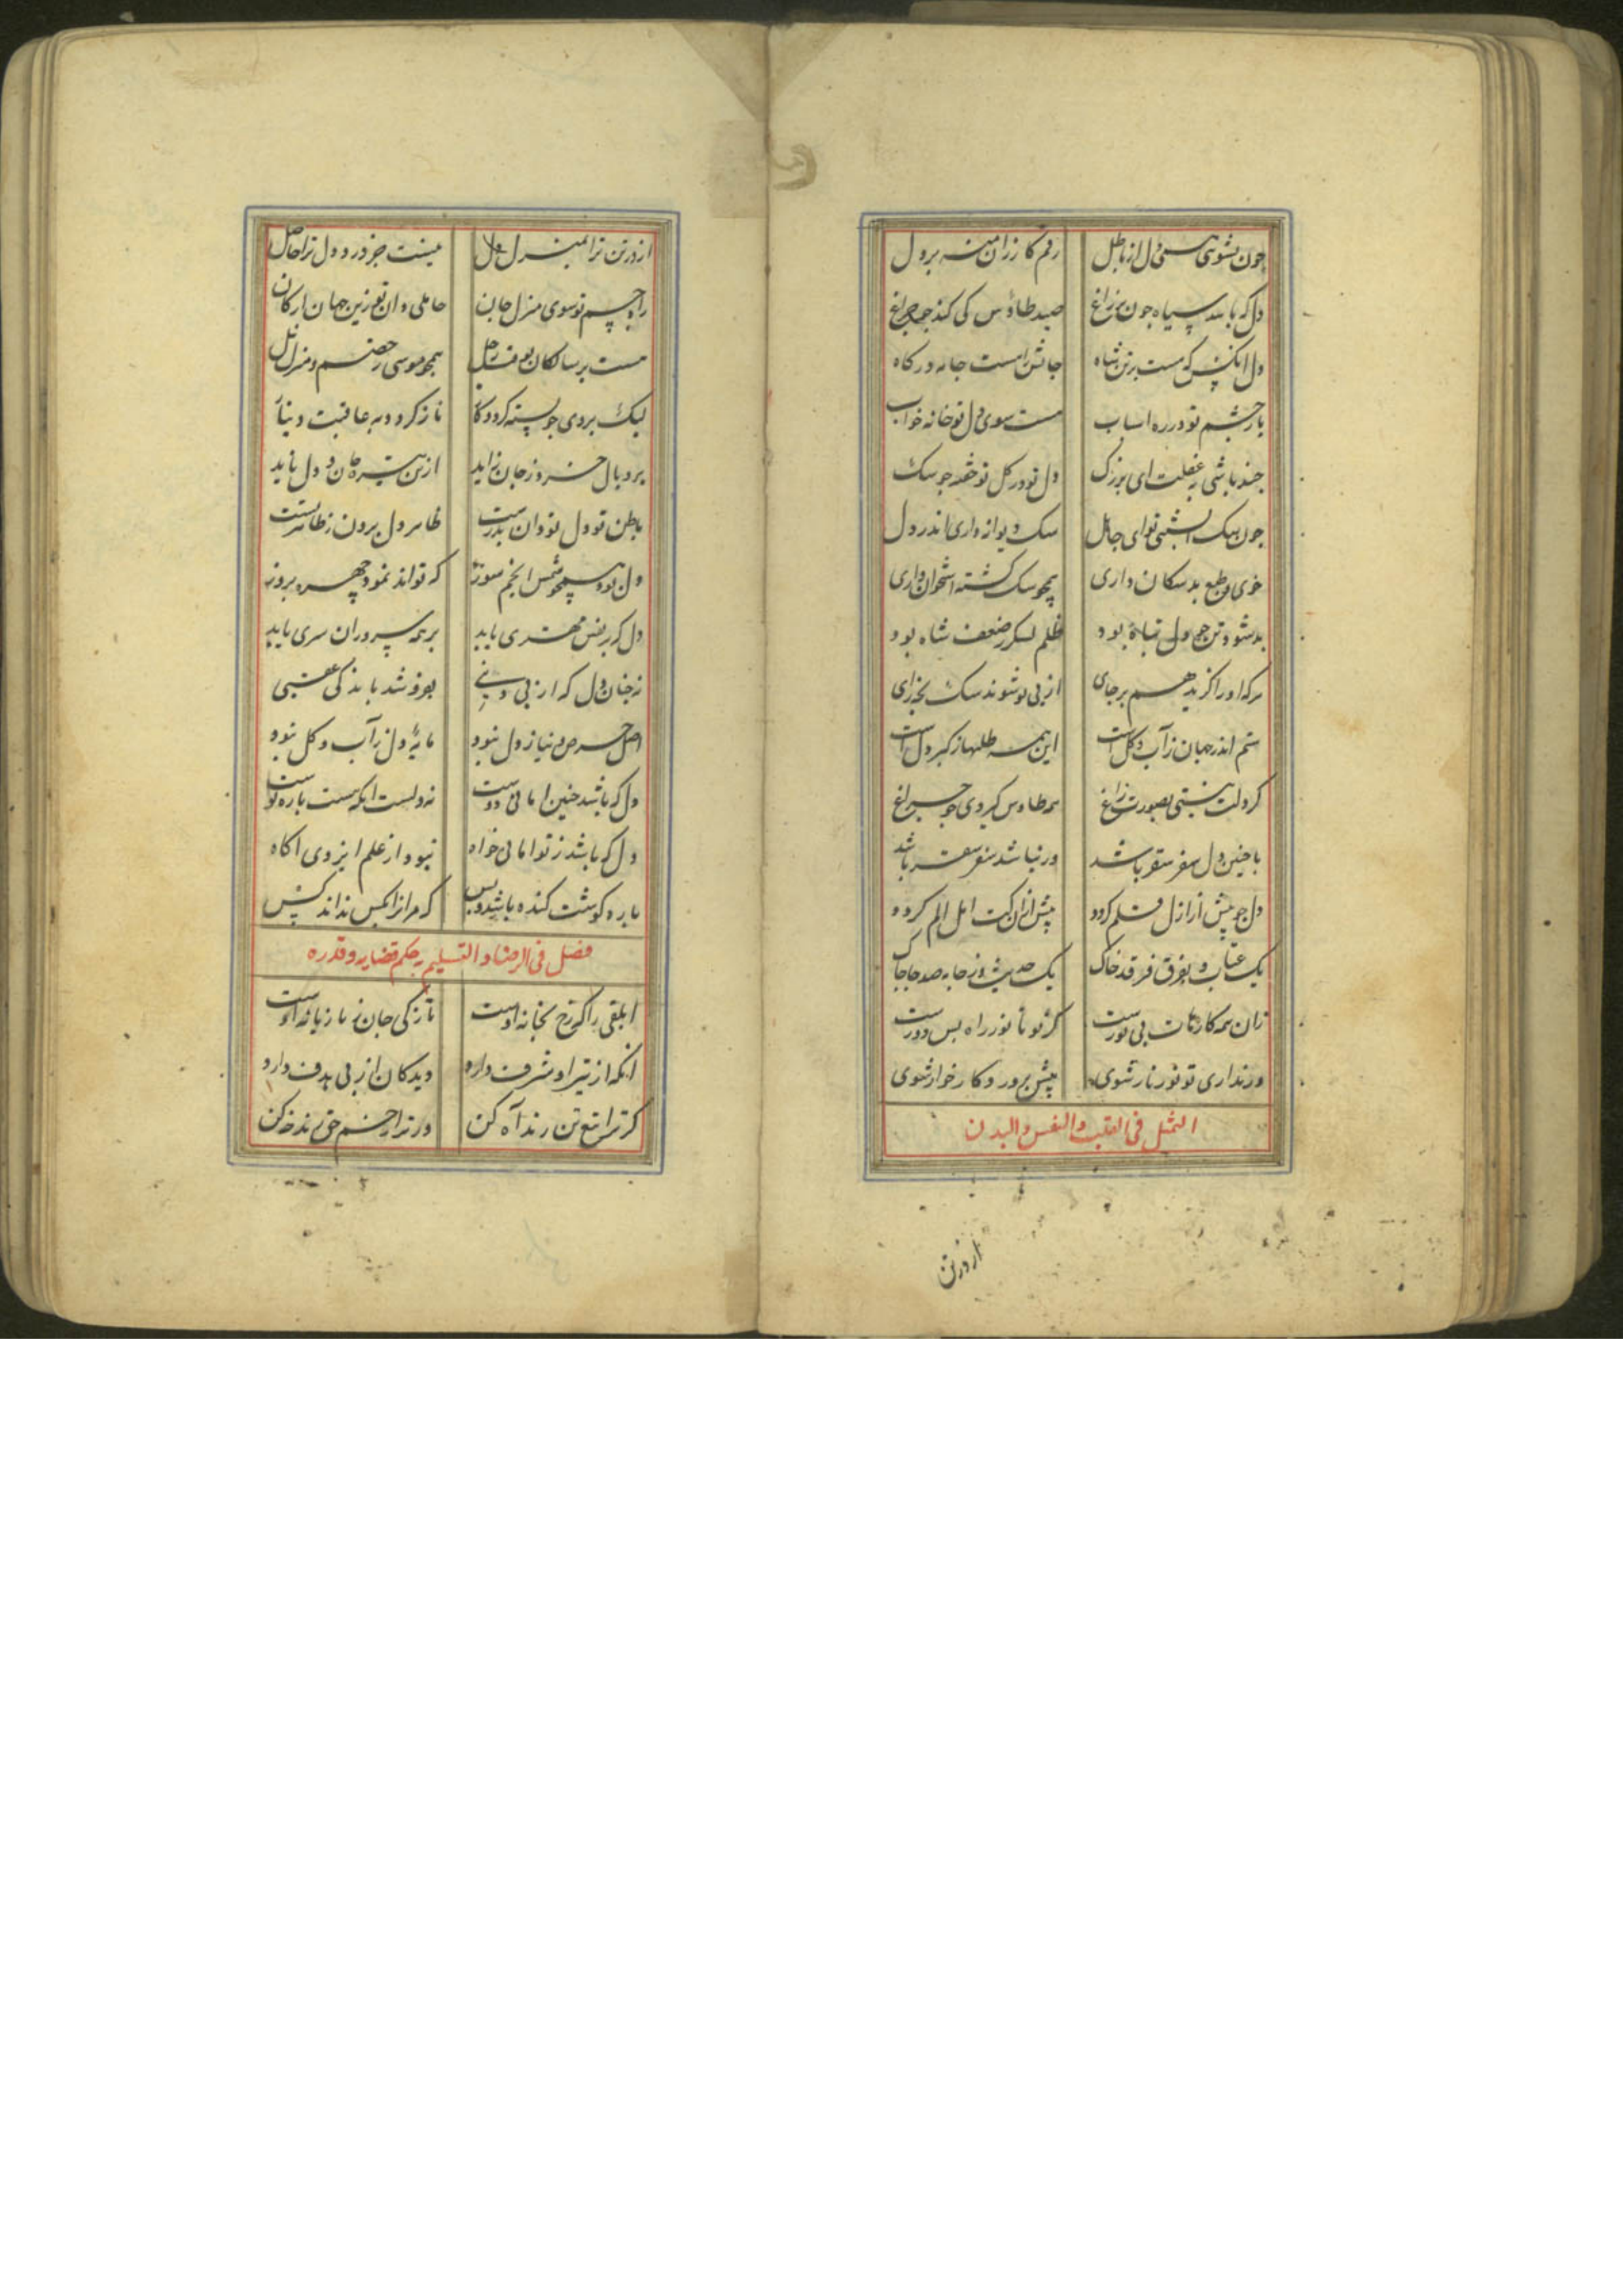 چون بشوی همی دل از باطل رقم کازران منه بر دل
دل که باشد سیاه چون پر زاغ صید طاوس کی کند چو چراغ
دل انکس که هست بر تن شاه جانش است جا به درگاه
باز چشم تو در ره اسباب هست سوی دل تو خانه خواب
چند باشی به غفلت ای بزرک دل تو در کل تو خفته چو سک
چون سک تو ای جاهل سک دیوانه داری اندر دل
خوی و طبع بد سکان داری همچو سک کشته استخوان داری
بد شود تن چو دل تباه بود ظلم لسکر ز ضعف شاه بود
هرکه او را کزید هم بر جای از پی تو شوند سک بخدای
ستم اندر جهان ز آب و کل است این همه ظلمها ز کبر دل است
کر دلت هستی بصورت زاغ همه طاوس کیردی چو چراغ
با چنین دل سفر سقر باشد ور نباشد سفر سقر باشد
دل چو پیش از ازل قلم کردد پیش از آن کت امل الم کردد
یک عتاب و بفرق فرقد خاک یک حدیث و ز جا به صد جا چاک
زان همه کارهات بی نورست کز تو تا نور راه بس دورست
ور نداری تو نور نار شوی پیش پرورد کار خوار شوی
التمثل فی القلب والنفس والبدن
از در تن
از در تن ترا بمنزل دل نیست جز درد دل ترا حاصل
راه جسم تو سوی منزل جان حاملی دان تو زین جهان ارکان
هست بر سالکان بوقت رحیل همچو موسی و خصم و منزل نیل
لیک بر وی چو بسته کردد کار ناز کردد به عاقبت دینار
پر و بال خرد ز جان زاید از تن تیره جان و دل ناید
باطن تو دل تو دان بدرست ظاهر دل برون ز ظاهر تست
دل بود همچو شمس انجم سوز که تواند نمود چهره بروز
دل که بر نفس مهتری یابد بر همه سروران سری یابد
نه چنان دل که از پی دنیی بفروشد باندکی عقبی
اصل حرص و نیاز دل نبود مایه دل ز آب و کل نبود
دل که باشد چنین امانی دوست نه دلست انکه هست پاره توست
دل که باشد ز تو امانی خواه نبود از علم ایزدی اکاه
پاره کوشت کنده باشد و بس که مر انرا بکس نداند کس
فصل فی الرضا و التسلیم بحکم قضایه و قدره
ابلقی را که چرخ نخانه اوست تازکی جان ز تازیانه اوست
انکه از تیر او شرف دارد دیدکان از پی هدف دارد
کر ترا تیغ تن زند آه کن ور ترا زخم حق زند خه کن